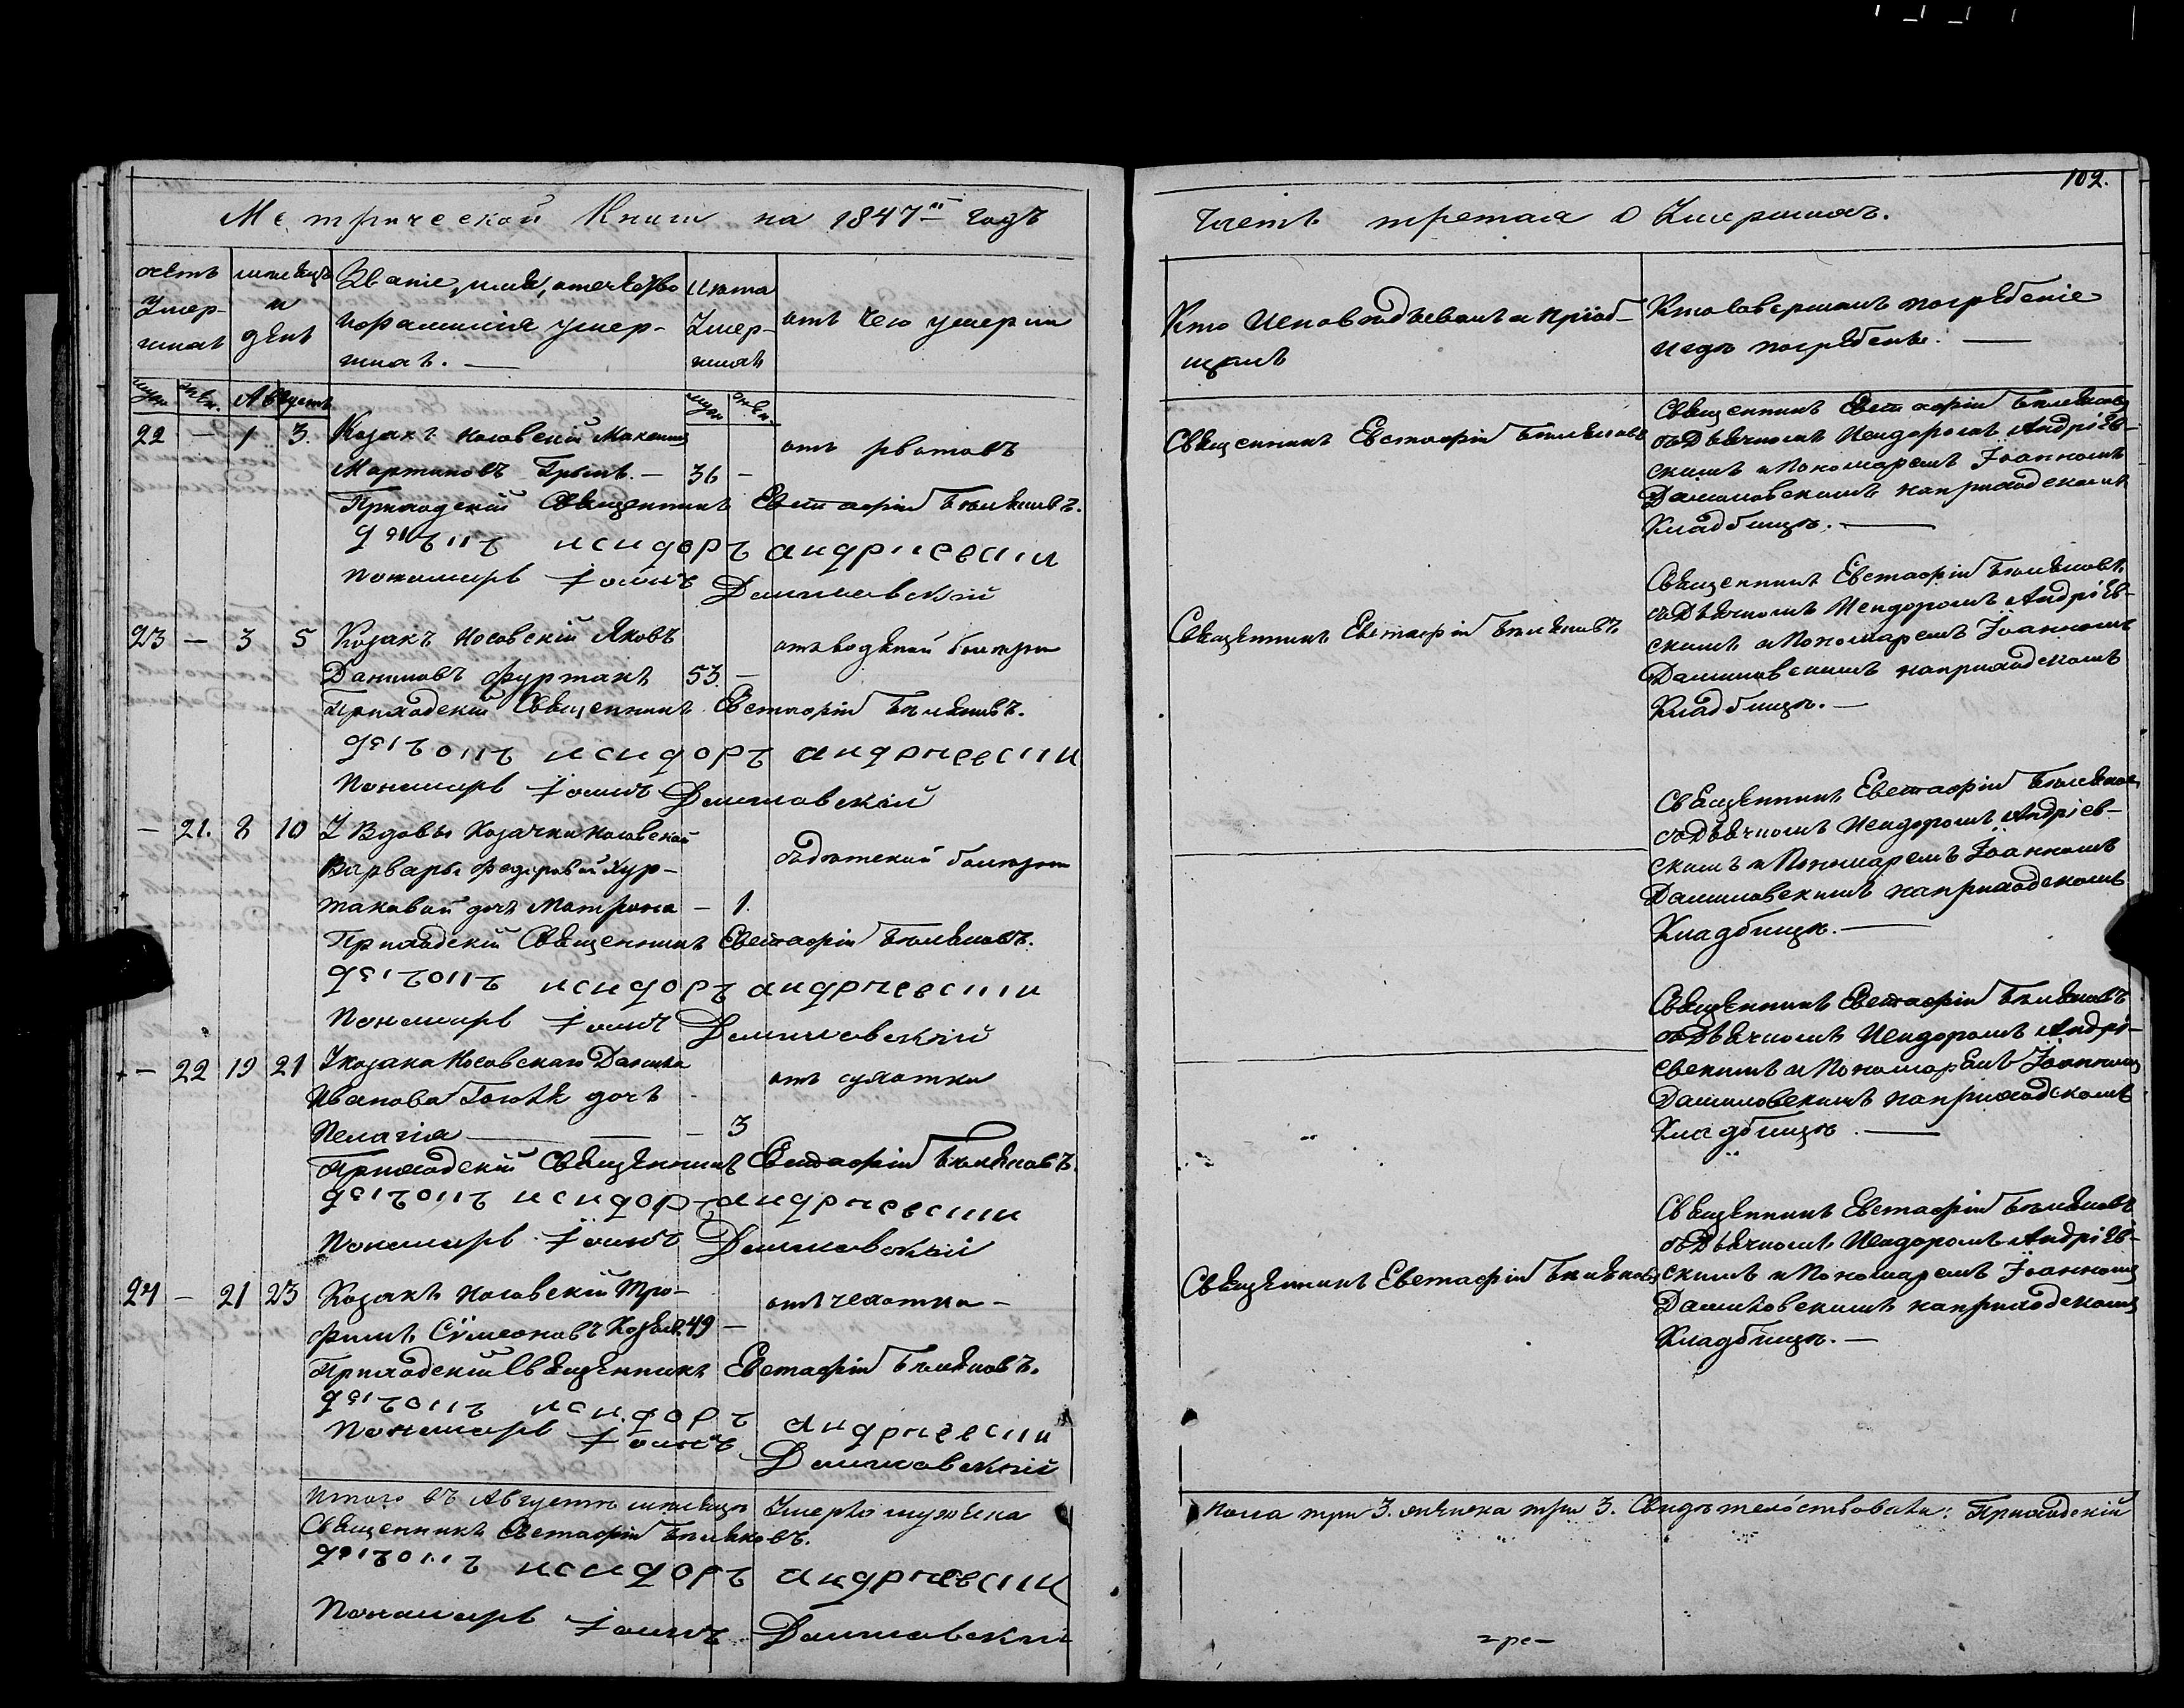 102.
Метрической Книги на 1847-й годъ
Часть третая О Умершихъ.
счетъ Умер-шихъ
мѣсяцъ и день
Званіе, имя, отечество
ифамилія умер-
шихъ. —
Лѣта Умер-шихъ
отъ чего умерли
Кто Исповѣдывалъ и пріоб-
щалъ
Кто Совершалъ погребеніе
игдѣ погребены. —
муж. жен. Августъ муж. жен.
22 — 1 3. Козакъ Носовскій Максимъ
Мартиновъ — 36 — отъ рвотовъ
Приходскій Священникъ Евстафій
исидоръ андриевский
Пономарь Іоаннъ Даниловскій
Священникъ Евстафій
Священникъ Евстафій
съ Дьячкомъ Исидоромъ Андріев-
скимъ и Пономаремъ Іоанномъ
Даниловскимъ наприходскомъ
Кладбищѣ. —
23 — 3 5 Козакъ Носовскій Яковъ
Даниловъ 53. — отъ водяной болѣзни
Приходскій Священникъ Евстафій
исидоръ андриевский
Пономарь Іоаннъ Даниловскій
Священникъ Евстафій
Священникъ Евстафій
съ Дьячкомъ Исидоромъ Андріев-
скимъ и Пономаремъ Іоанномъ
Даниловскимъ наприходскомъ
Кладбищѣ. —
— 21. 8 10 У Вдовы Козачки Носовской
Варвары Федоровой
дочь Матрона — 1. болѣзни
Приходскій Священникъ Евстафій
исидоръ андриевский
Пономарь Іоаннъ Даниловскій
Священникъ Евстафій
съ Дьячкомъ Исидоромъ Андріев-
скимъ и Пономаремъ Іоанномъ
Даниловскимъ наприходскомъ
Кладбищѣ. —
— 22 19 21 У козака Носовскаго Данила
Иванова дочь
Пелагія — 3 отъ сухотки
Приходскій Священникъ Евстафій
исидоръ андриевский
Пономарь Іоаннъ Даниловскій
Священникъ Евстафій
съ Дьячкомъ Исидоромъ Андрі-
евскимъ и Пономаремъ Іоанномъ
Даниловскимъ наприходскомъ
Кладбищѣ. —
24 — 21 23 Козакъ Носовскій Тро-
фимъ Сѵмеоновъ 49 — отъ чехотки —
Приходскій Священникъ Евстафій
исидоръ андриевский
Пономарь Іоаннъ Даниловскій
Священникъ Евстафій
Священникъ Евстафій
съ Дьячкомъ Исидоромъ Андріев-
скимъ и Пономаремъ Іоанномъ
Даниловскимъ наприходскомъ
Кладбищѣ. —
Итого въ Августѣ мѣсяцѣ Умерло мужеска
Пола три 3. женска три 3. Свидѣтельствовали: Приходскій
Священникъ Евстафій
исидоръ андриевский
Пономарь Іоаннъ Даниловскій